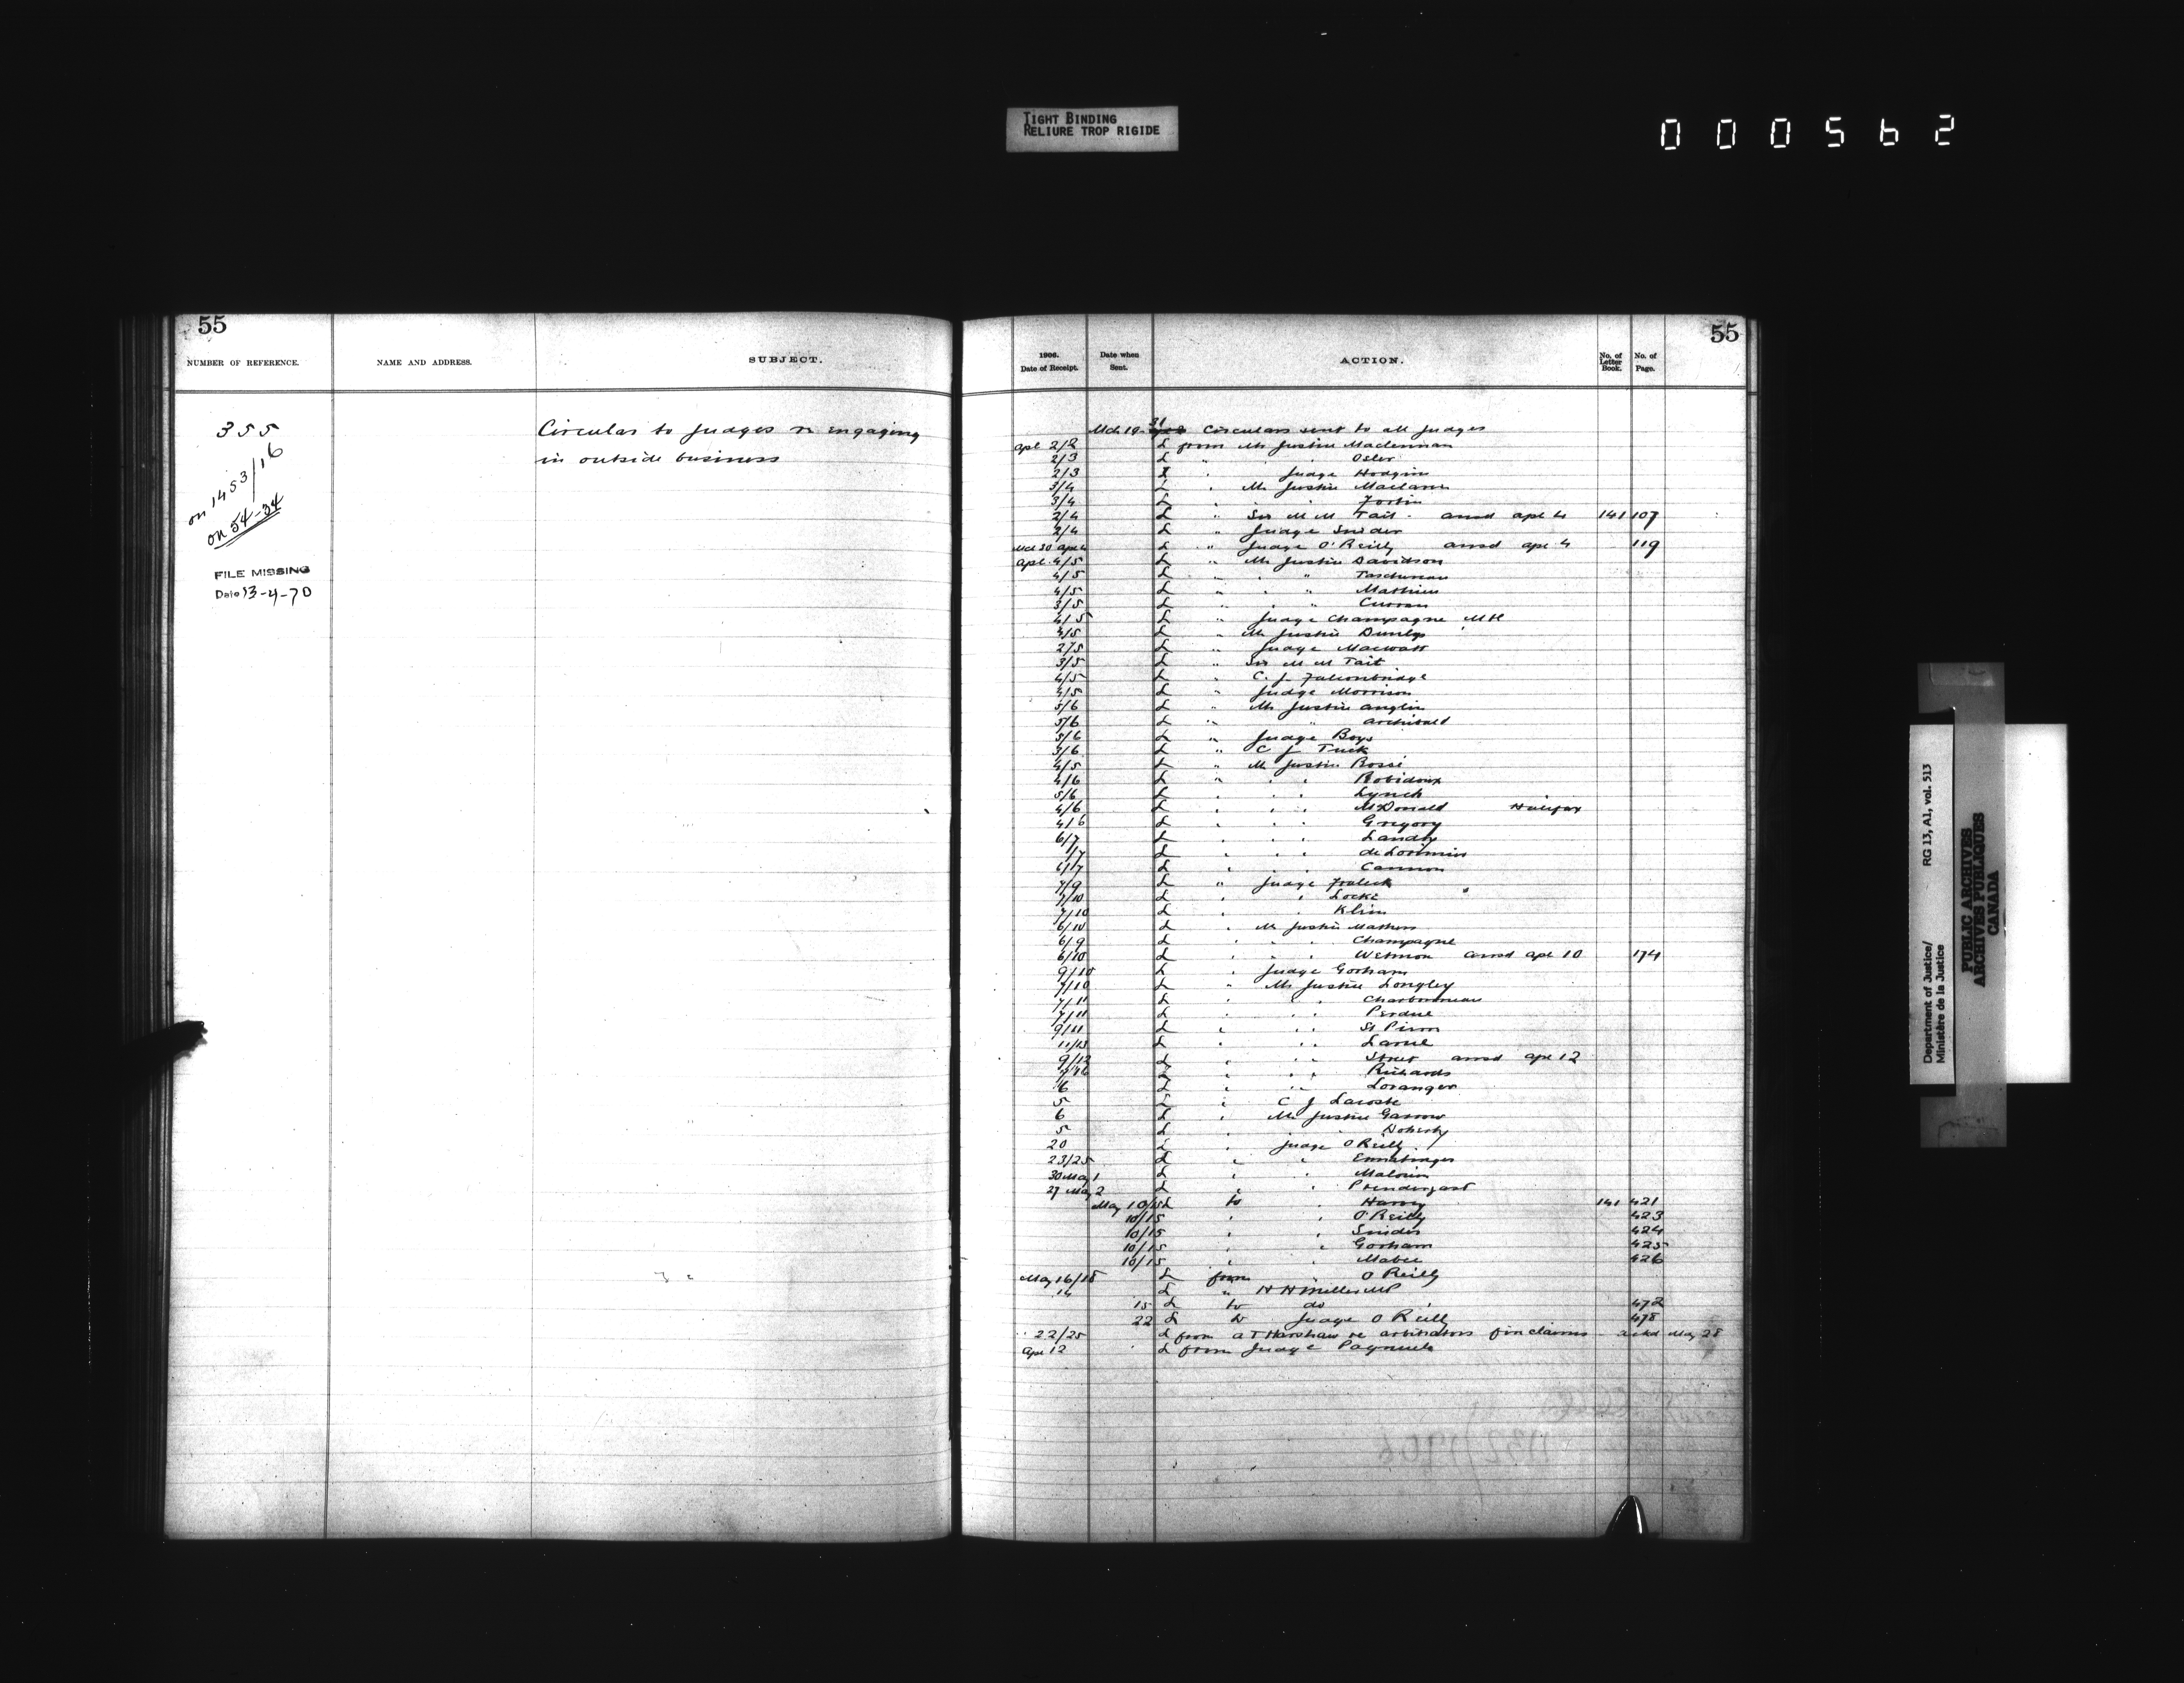 TIGHT BINDING
RELIURE TROP RIGIDE
000562
55
NUMBER OF REFERENCE.
NAME AND ADDRESS.
SUBJECT.
355
on 1453/16
on 54-34
FILE MISSING
Date 13-4-70
Circular to Judges re engaging
in outside business
55
1906.
Date of Receipt.
Date when
Sent.
ACTION.
No. of
Letter
Book.
No. of
Page.
Mch 19 31 Circulars sent to all Judges
Apl 2/2 L from Mr Justice Maclennan
2/3 L " Osler
2/3 " Judge Hodgins
3/4 L " Mr Justice Maclaren
3/4 L " Fortin
2/4 L " Sir M M Tait. ansd Apl 4 141 107
2/4 L " Judge Snider
Mch 30 Apl 4 L " Judge O'Reilly ansd Apl 4 119
Apl 4/5 L " Mr Justice Davidson
4/5 L " " Taschereau
4/5 L " " Mathieu
3/5 L " " Curran
4/5 L " Judge Champagne
4/5 L " Mr Justice Dunlop
2/5 L " Judge Macwatt
3/5 L " Sir M M Tait
4/5 L " C. J. Falconbridge
4/5 L " Judge Morrison
5/6 L " Mr Justice Anglin
5/6 L " " Archibald
5/6 L " Judge Boys
3/6 L " C J Tuck
4/5 L " Mr Justice Bossé
4/6 L " " Robidoux
5/6 L " " Lynch
4/6 L " " McDonald Halifax
4/6 L " " Gregory
6/7 L " " Landry
/7 L " " de Lorimier
6/7 L " " Cannon
7/9 L " Judge
7/10 L " " Locke
7/10 L " " Klein
6/10 L " Mr Justice Mathers
6/9 L " " Champagne
6/10 L " " Wetmore ansd Apl 10 174
9/10 L " Judge Gorham
7/10 L " Mr Justice Longley
7/11 L " " Charbonneau
7/11 L " " Perdue
9/11 L " " St Pierre
11/13 L " " Larue
9/12 L " " Street ansd Apl 12
L " " Richards
6 L " " Loranger
5 L " C J Lacoste
6 L " Mr Justice Garrow
5 L " " Doherty
20 L " Judge O Reilly
23/25 L " " Ermatinger
30 May 1 L " " Malouin
27 May 2 L " " Prendergast
May 10/15 L to Harvey 141 421
10/15 " " O'Reilly 423
10/15 " " Snider 424
10/15 " " Gorham 425
10/15 " " Mabee 426
May 16/18 L from " O Reilly
14 L " H H Miller MP
15 L to do 472
22 L to Judge O Reilly 478
" 22/25 L from A T Harshaw re arbitrators fin claims ackd May 28
Apl 12 L from Judge Pagnuelo
Department of Justice/
Ministère de la Justice
RG 13, A1, vol. 513
PUBLIC ARCHIVES
ARCHIVES PUBLIQUES
CANADA